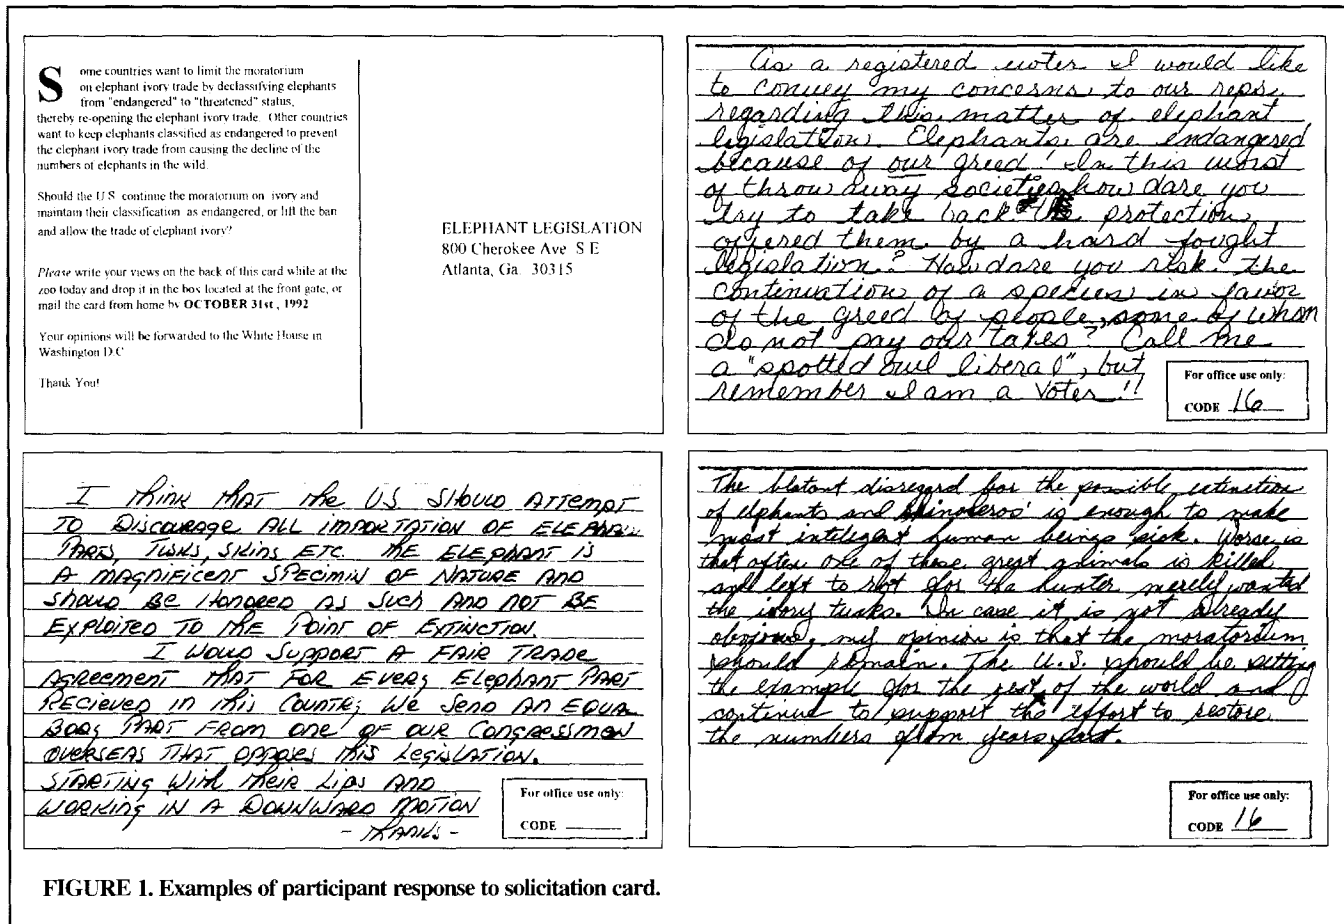 Some countries want to limit the moratorium
on elephant ivory trade by declassifying elephants
from "endangered" to "threatened" status,
thereby re-opening the elephant ivory trade. Other countries
want to keep elephants classified as endangered to prevent
the elephant ivory trade from causing the decline of the
numbers of elephants in the wild.
Should the U S continue the moratorium on ivory and
maintain their classification as endangered, or lift the ban
and allow the trade of elephant ivory?
Please write your views on the back of this card while at the
zoo today and drop it in the box located at the front gate, or
mail the card from home by OCTOBER 31st, 1992
Your opinions will be forwarded to the White House in
Washington D.C
Thank You!
ELEPHANT LEGISLATION
800 Cherokee Ave S E
Atlanta, Ga 30315
As a registered voter I would like
to convey my concerns to our reps.
regarding this matter of elephant
legislation. Elephants are endangered
because of our greed! In this worst
of throw away societies how dare you
try to take back the protection
offered them by a hard fought
legislation? How dare you risk the
continuation of a species in favor
of the greed of people, some of whom
do not pay our taxes? Call me
a "spotted owl liberal", but
remember I am a voter!!
For office use only:
CODE 16
I think that the US should attempt
to discourage all importation of elephant
parts, tusks, skins etc. The elephant is
a magnificent specimin of nature and
should be honored as such and not be
exploited to the point of extinction.
I would support a fair trade
agreement that for every elephant part
recieved in this country we send an equal
body part from one of our congressmen
overseas that opposes this legislation.
Starting with their lips and
working in a downward motion
- Thanks -
For office use only:
CODE
The blatant disregard for the possible extinction
of elphants and rhinoceros' is enough to make
most inteligent human beings sick. Worse is
that often one of these great animals is killed
and left to rot for the hunter merely wanted
the ivory tusks. In case it is not already
obvious, my opinion is that the moratorium
should remain. The U.S. should be setting
the example for the rest of the world and
continue to support the effort to restore
the numbers from years past.
For office use only:
CODE 16
FIGURE 1. Examples of participant response to solicitation card.